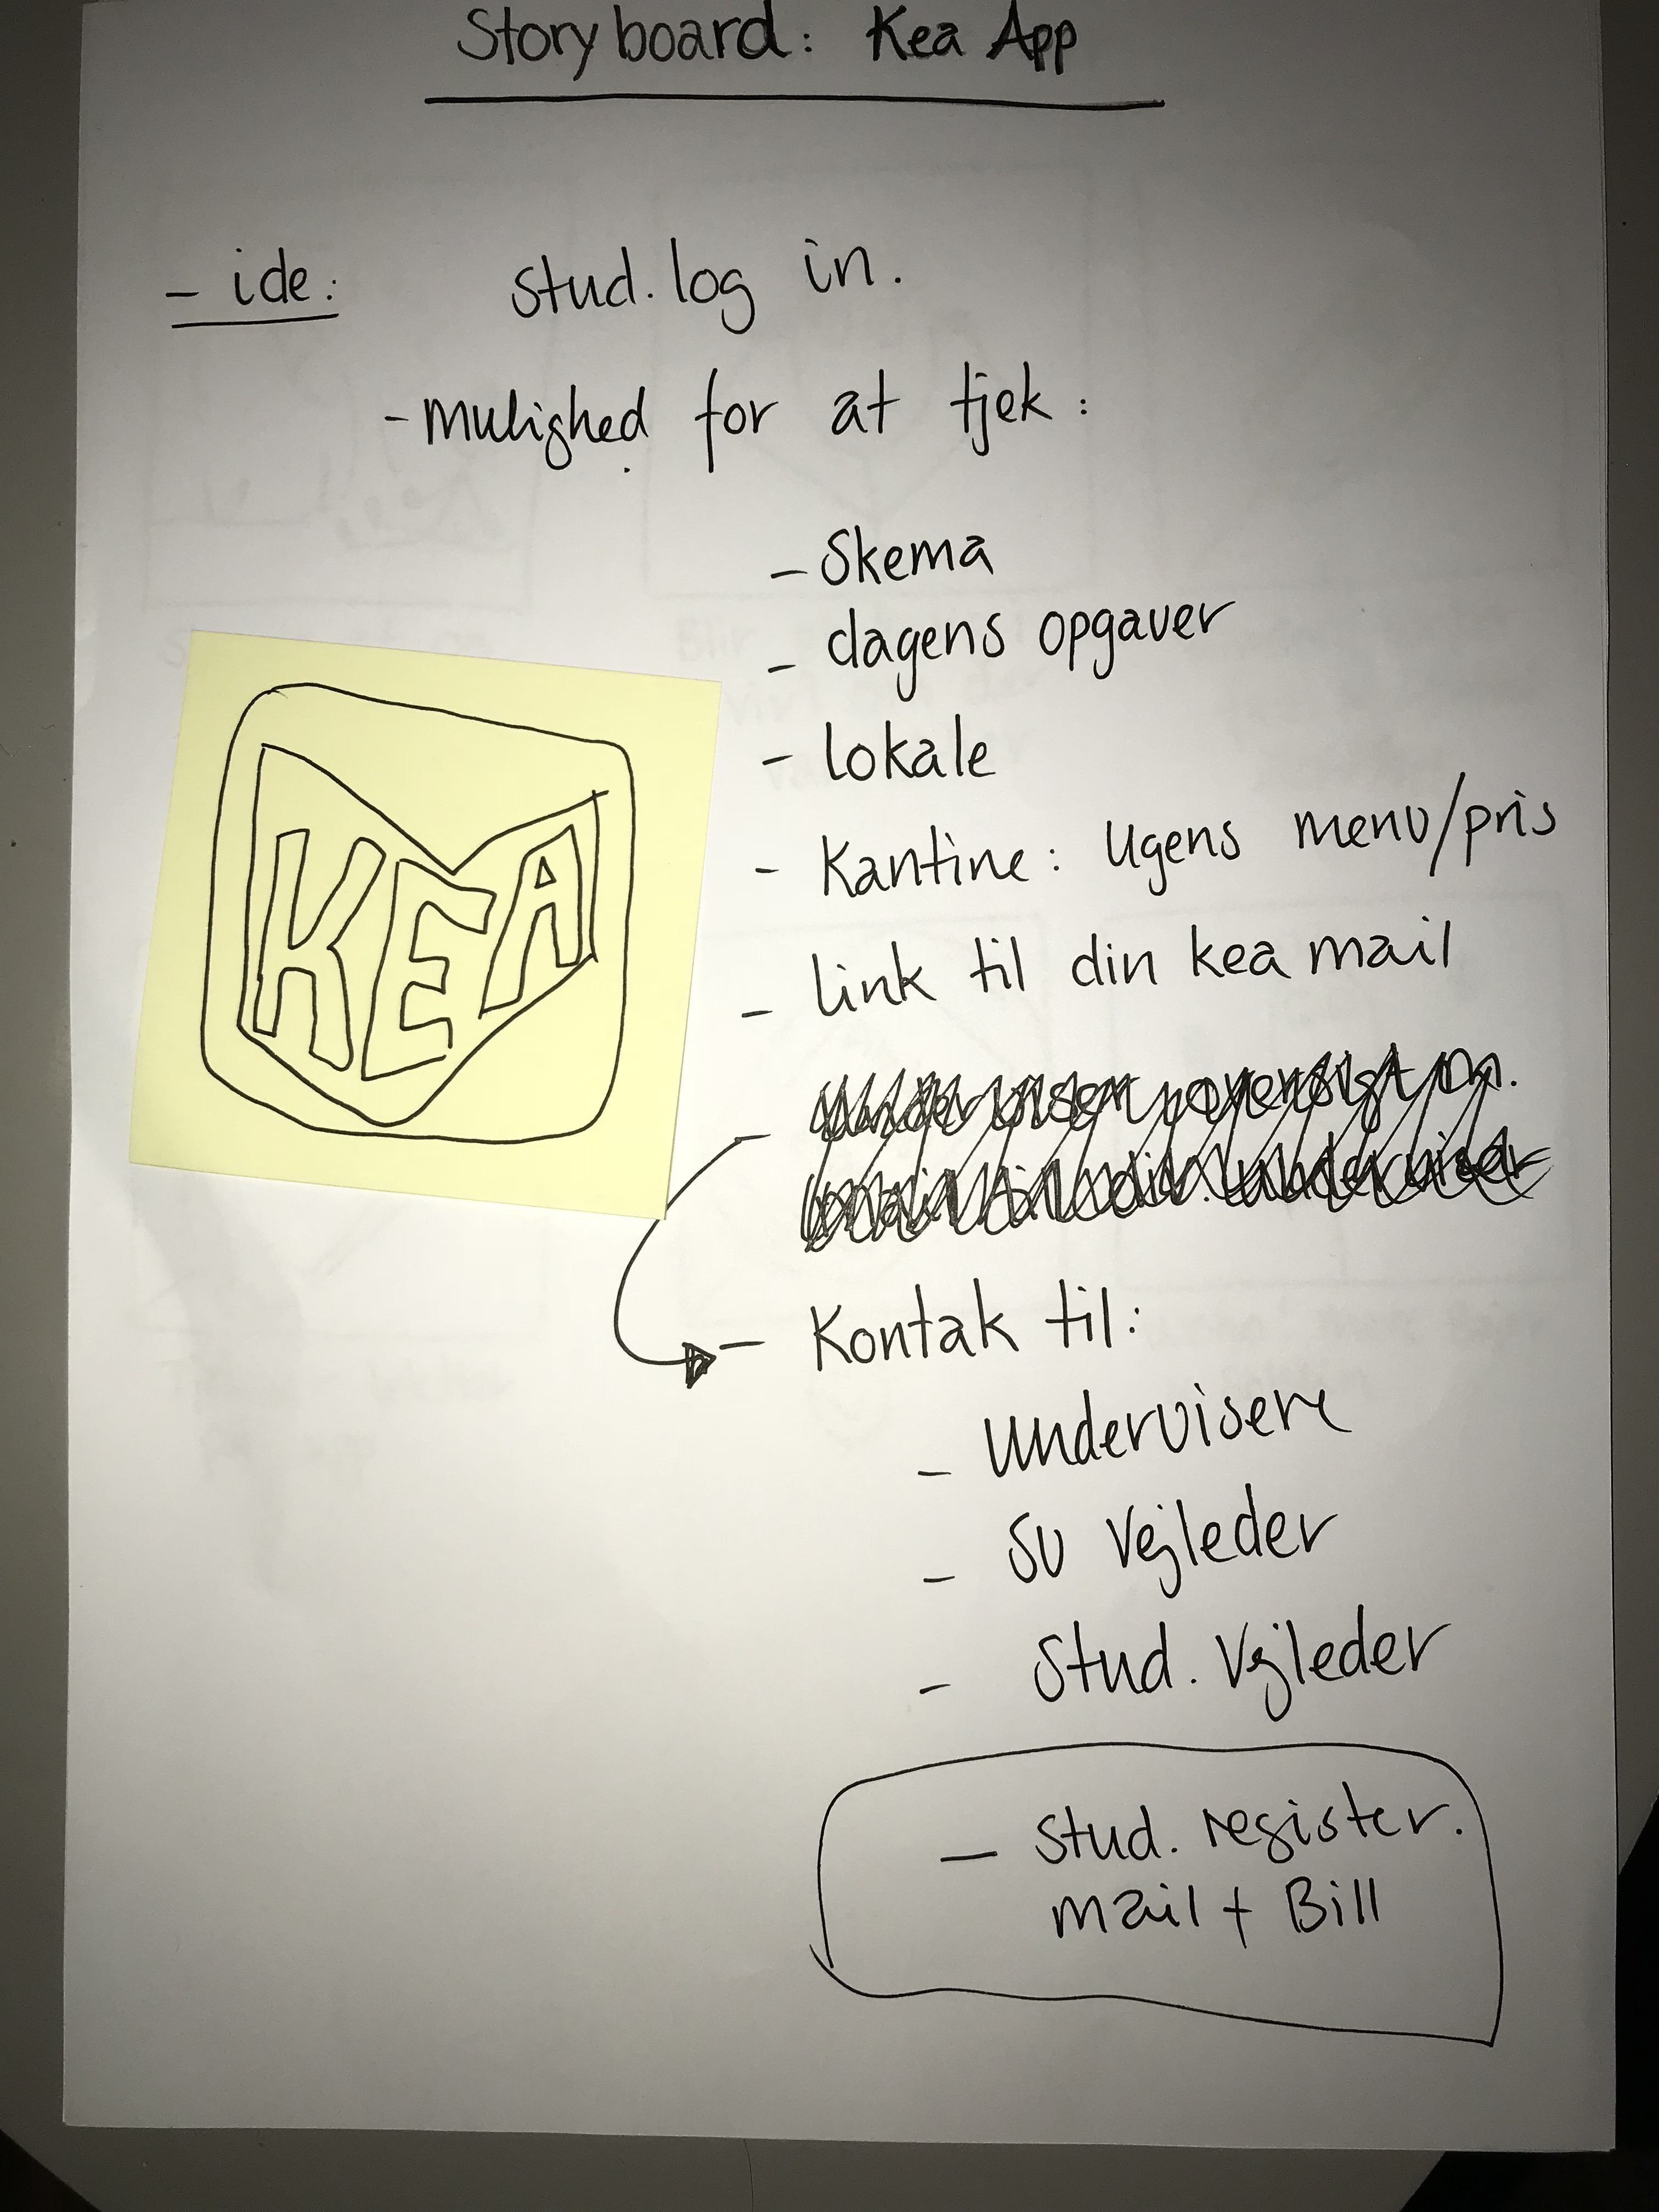 Storyboard: Kea App
- ide: stud. log in.
- mulighed for at tjek:
- Skema
- dagens opgaver
- lokale
- Kantine: Ugens menu/pris
- link til din kea mail
KEA
- Kontak til:
- Undervisere
- SU Vejleder
- Stud. Vejleder
- Stud. register.
mail + Bill